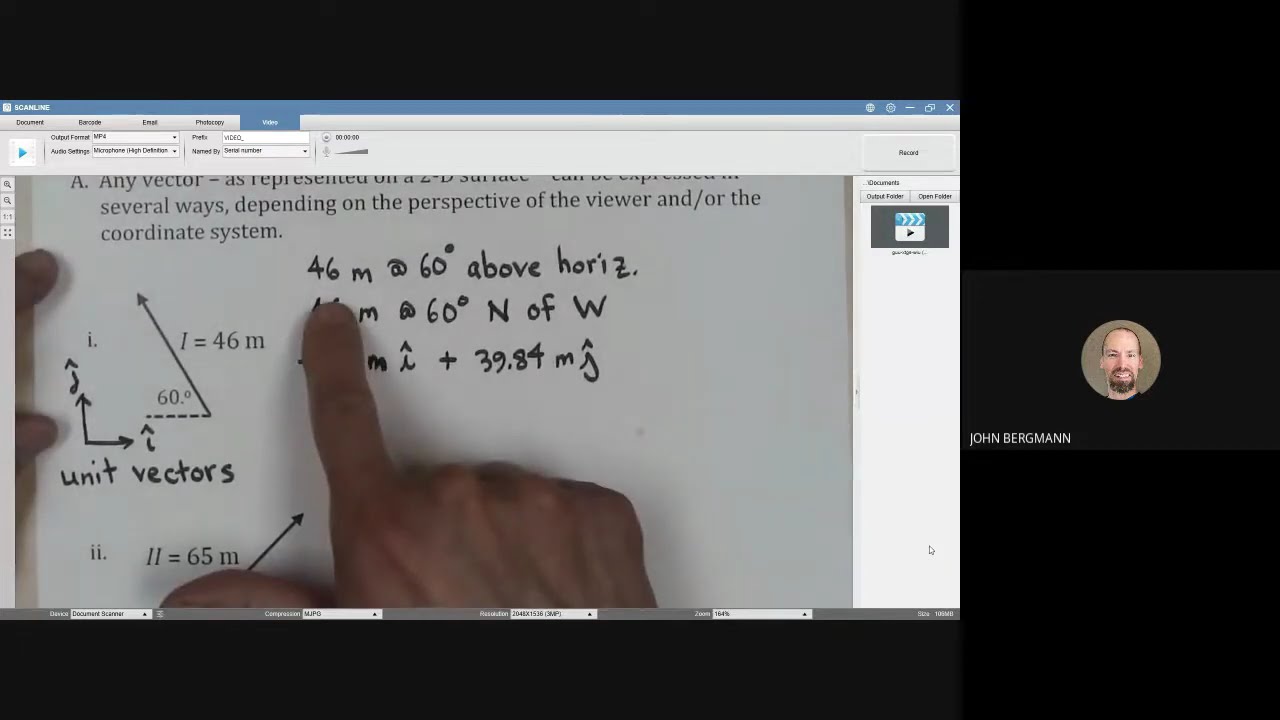 SCANLINE
Document Barcode Email Photocopy Video
Output Format MP4 Prefix VIDEO_ 00:00:00
Audio Settings Microphone (High Definition Named By Serial number
Record
A. Any vector – as represented on a 2-D surface – can be expressed in
several ways, depending on the perspective of the viewer and/or the
coordinate system.
46 m @ 60° above horiz.
m @ 60° N of W
m î + 39.84 m ĵ
i.
I = 46 m
60.°
ĵ
î
unit vectors
ii. II = 65 m
1:1
...\Documents
Output Folder Open Folder
Device Document Scanner Compression MJPG Resolution 2048X1536 (3MP) Zoom 164% Size: 106MB
JOHN BERGMANN